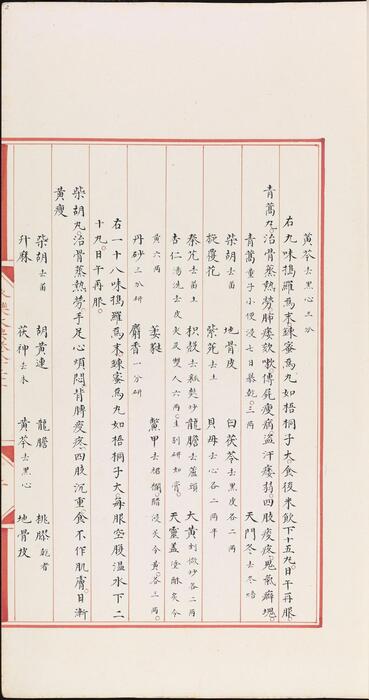 黃芩去黑心三分
右九味搗羅爲末鍊蜜爲丸如梧桐子大食後米飲下十五丸日午再服
青蒿丸治骨蒸熱勞肺痿欬嗽傳屍瘦病盜汗痿弱四肢痠疼鬼氣癖塊
青蒿童子小便浸七日暴乾三兩 天門冬去冬
柴胡去苗 地骨皮 白茯苓去黑皮各二兩
旋覆花 紫菀去土 貝母去心各二兩半
秦艽去苗土 枳殼去瓤麩炒 龍膽去蘆頭 大黃剉微炒各二兩
杏仁湯浸去皮尖及雙人六兩別研如膏 天靈蓋塗酥炙令
黃六兩 虀 鱉甲去裙襴醋浸炙令黃各三兩
丹砂三分研 麝香一分研
右一十八味搗羅爲末鍊蜜爲丸如梧桐子大每服空腹溫水下二
十丸日午再服
柴胡丸治骨蒸熱勞手足心煩悶背膊痠疼四肢沉重食不作肌膚日漸
黃瘦
柴胡去苗 胡黃連 龍膽 桃膠乾者
升麻 茯神去木 黃芩去黑心 地骨皮